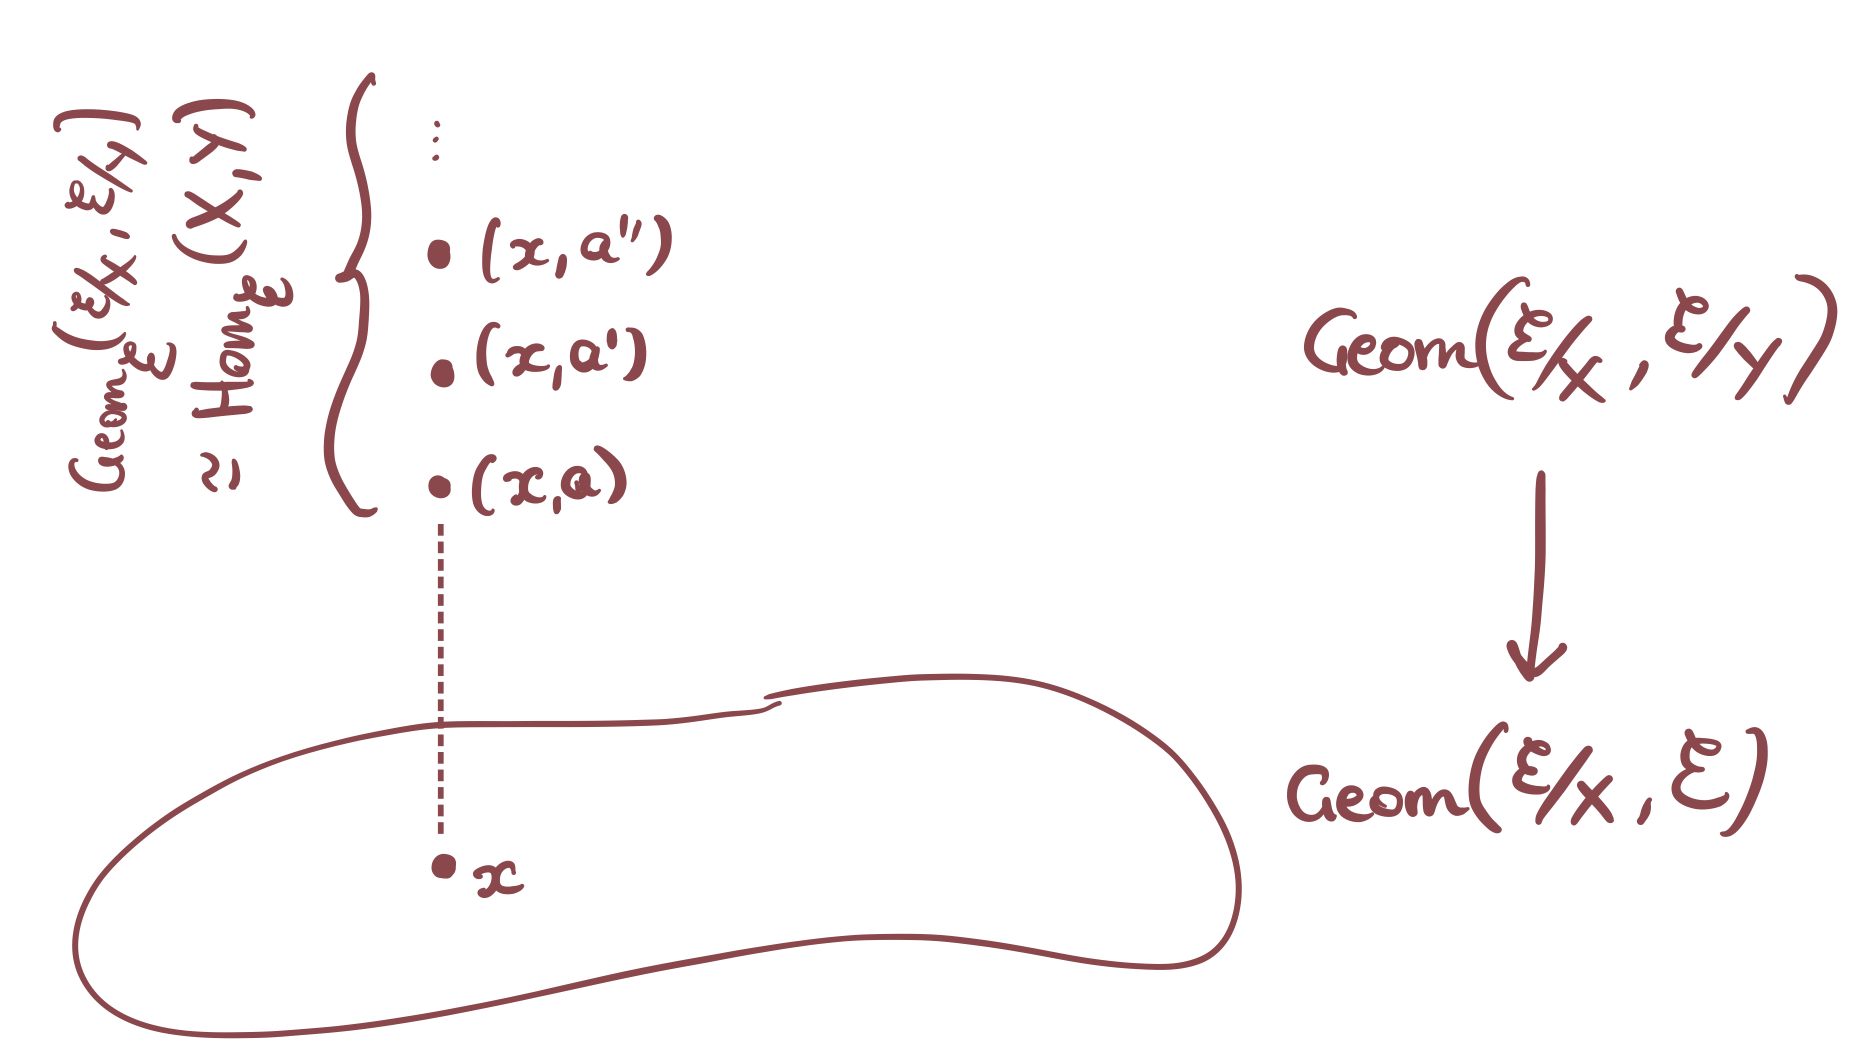 Geom_ℰ(ℰ/X, ℰ/Y)
≃ Hom_ℰ(X, Y)
⋮
(x, a'')
(x, a')
(x, a)
x
Geom(ℰ/X, ℰ/Y)
↓
Geom(ℰ/X, ℰ)